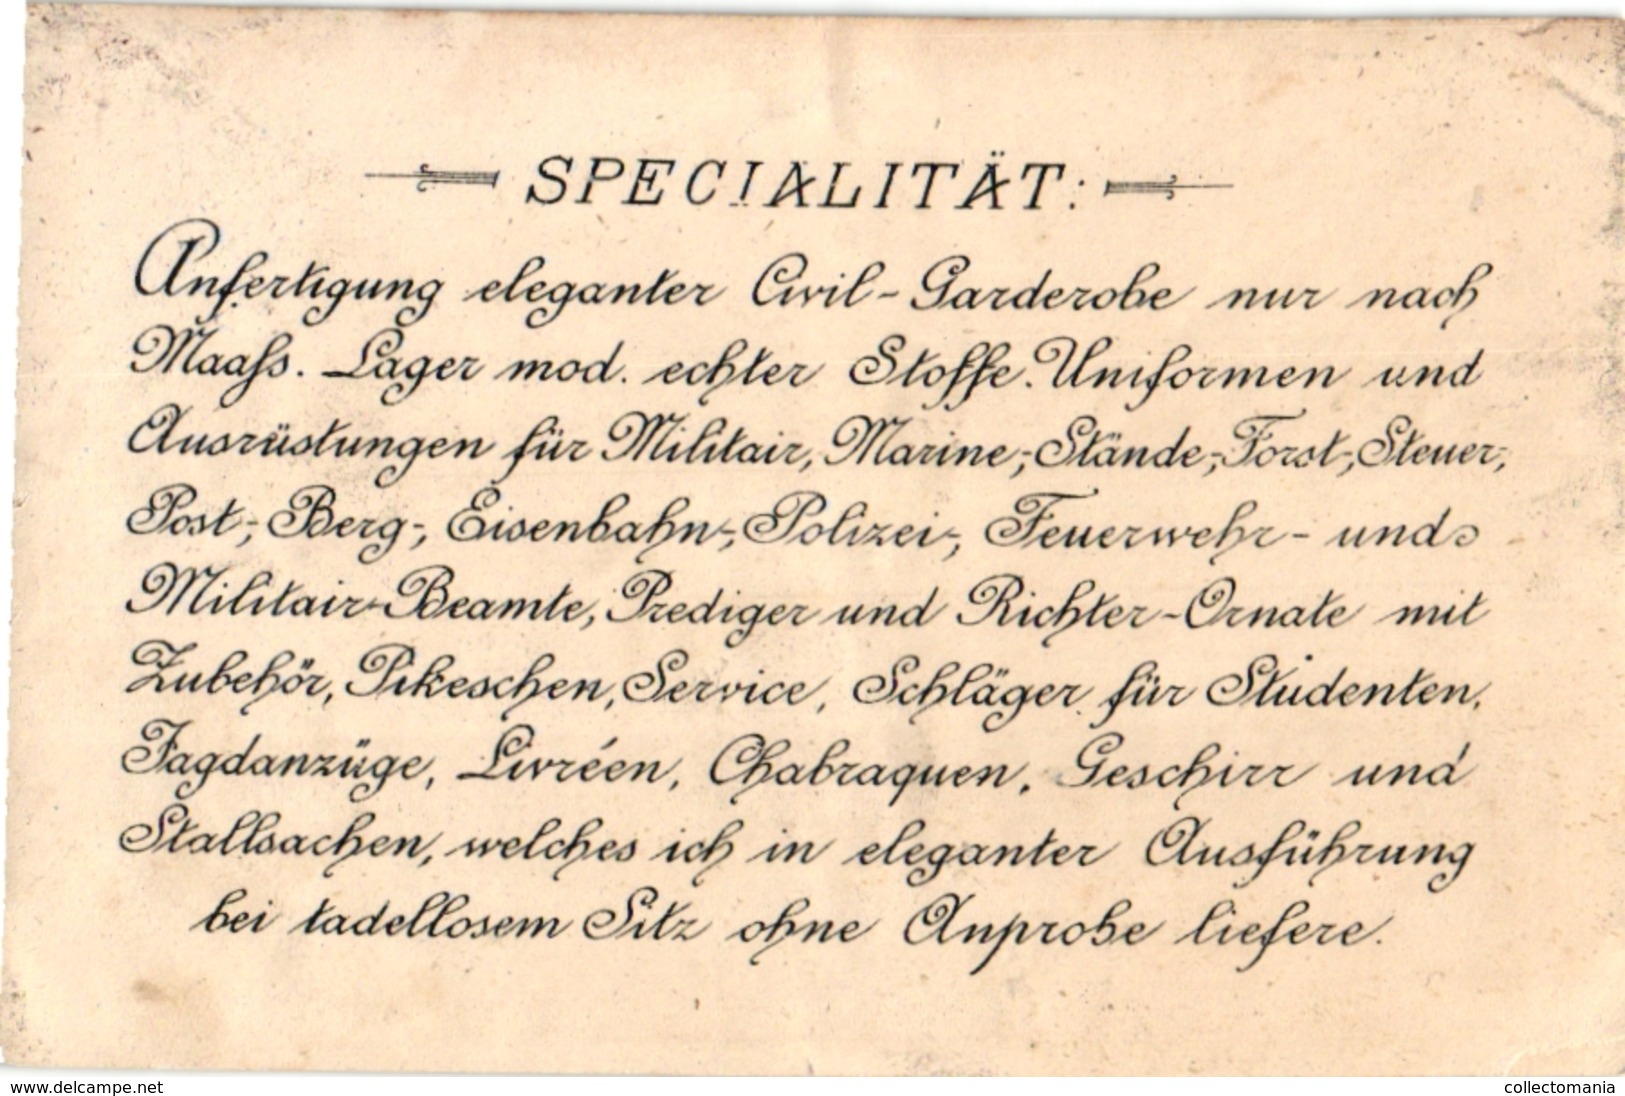 SPECIALITÄT:
Anfertigung eleganter Civil-Garderobe nur nach
Maass. Lager mod. echter Stoffe. Uniformen und
Ausrüstungen für Militair, Marine-, Stände-, Forst-, Steuer-,
Post-, Berg-, Eisenbahn-, Polizei-, Feuerwehr- und
Militair-Beamte, Prediger und Richter-Ornate mit
Zubehör, Pikeschen, Service, Schläger für Studenten,
Jagdanzüge, Livréen, Chabraquen, Geschirr und
Stallsachen, welches ich in eleganter Ausführung
bei tadellosem Sitz ohne Anprobe liefere.
www.delcampe.net
collectomania